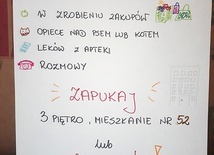 W ZROBIENIU ZAKUPÓW
OPIECE NAD PSEM LUB KOTEM
LEKÓW Z APTEKI
ROZMOWY
ZAPUKAJ
3 PIĘTRO, MIESZKANIE NR 52
lub